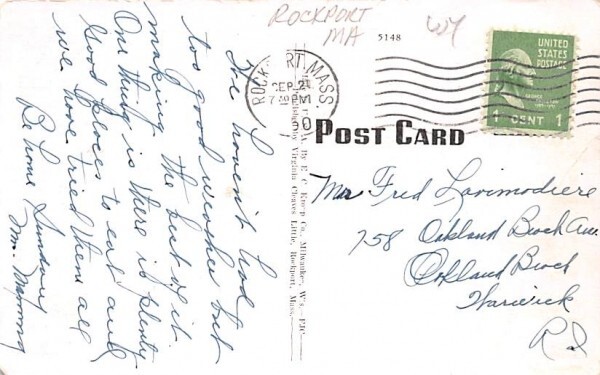 ROCKPORT
MA
WY
5148
ROCKPORT, MASS.
SEP 21
7 PM
UNITED
STATES
POSTAGE
1 CENT 1
POST CARD
We haven't had
too good weather but
making the best of it
One thing is there is plenty
Good places to eat and
we have tried them all
Be home Sunday
Wm.
by E. C. Kropp Co., Milwaukee, Wis.
by Virginia Cleaves Little, Rockport, Mass.
Mr Fred Larimodiere
758 Oakland Beach Ave.
Oakland Beach
Warwick
R I